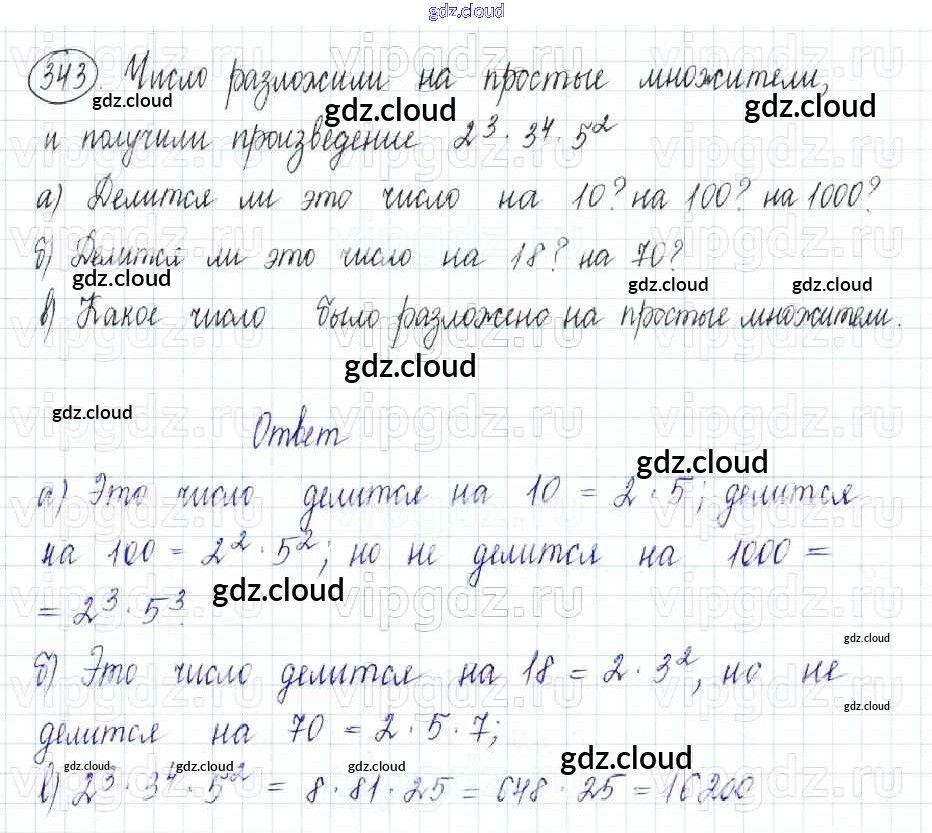 gdz.cloud
343. Число разложили на простые множители,
gdz.cloud gdz.cloud gdz.cloud
и получили произведение 2³ · 3⁴ · 5²
а) Делится ли это число на 10? на 100? на 1000?
б) Делится ли это число на 18? на 70?
gdz.cloud gdz.cloud gdz.cloud
в) Какое число было разложено на простые множители.
gdz.cloud
gdz.cloud
Ответ
gdz.cloud
а) Это число делится на 10 = 2 · 5; делится
на 100 = 2² · 5²; но не делится на 1000 =
= 2³ · 5³.
gdz.cloud
gdz.cloud
б) Это число делится на 18 = 2 · 3², но не
gdz.cloud
делится на 70 = 2 · 5 · 7;
gdz.cloud gdz.cloud gdz.cloud gdz.cloud
в) 2³ · 3⁴ · 5² = 8 · 81 · 25 = 648 · 25 = 16200